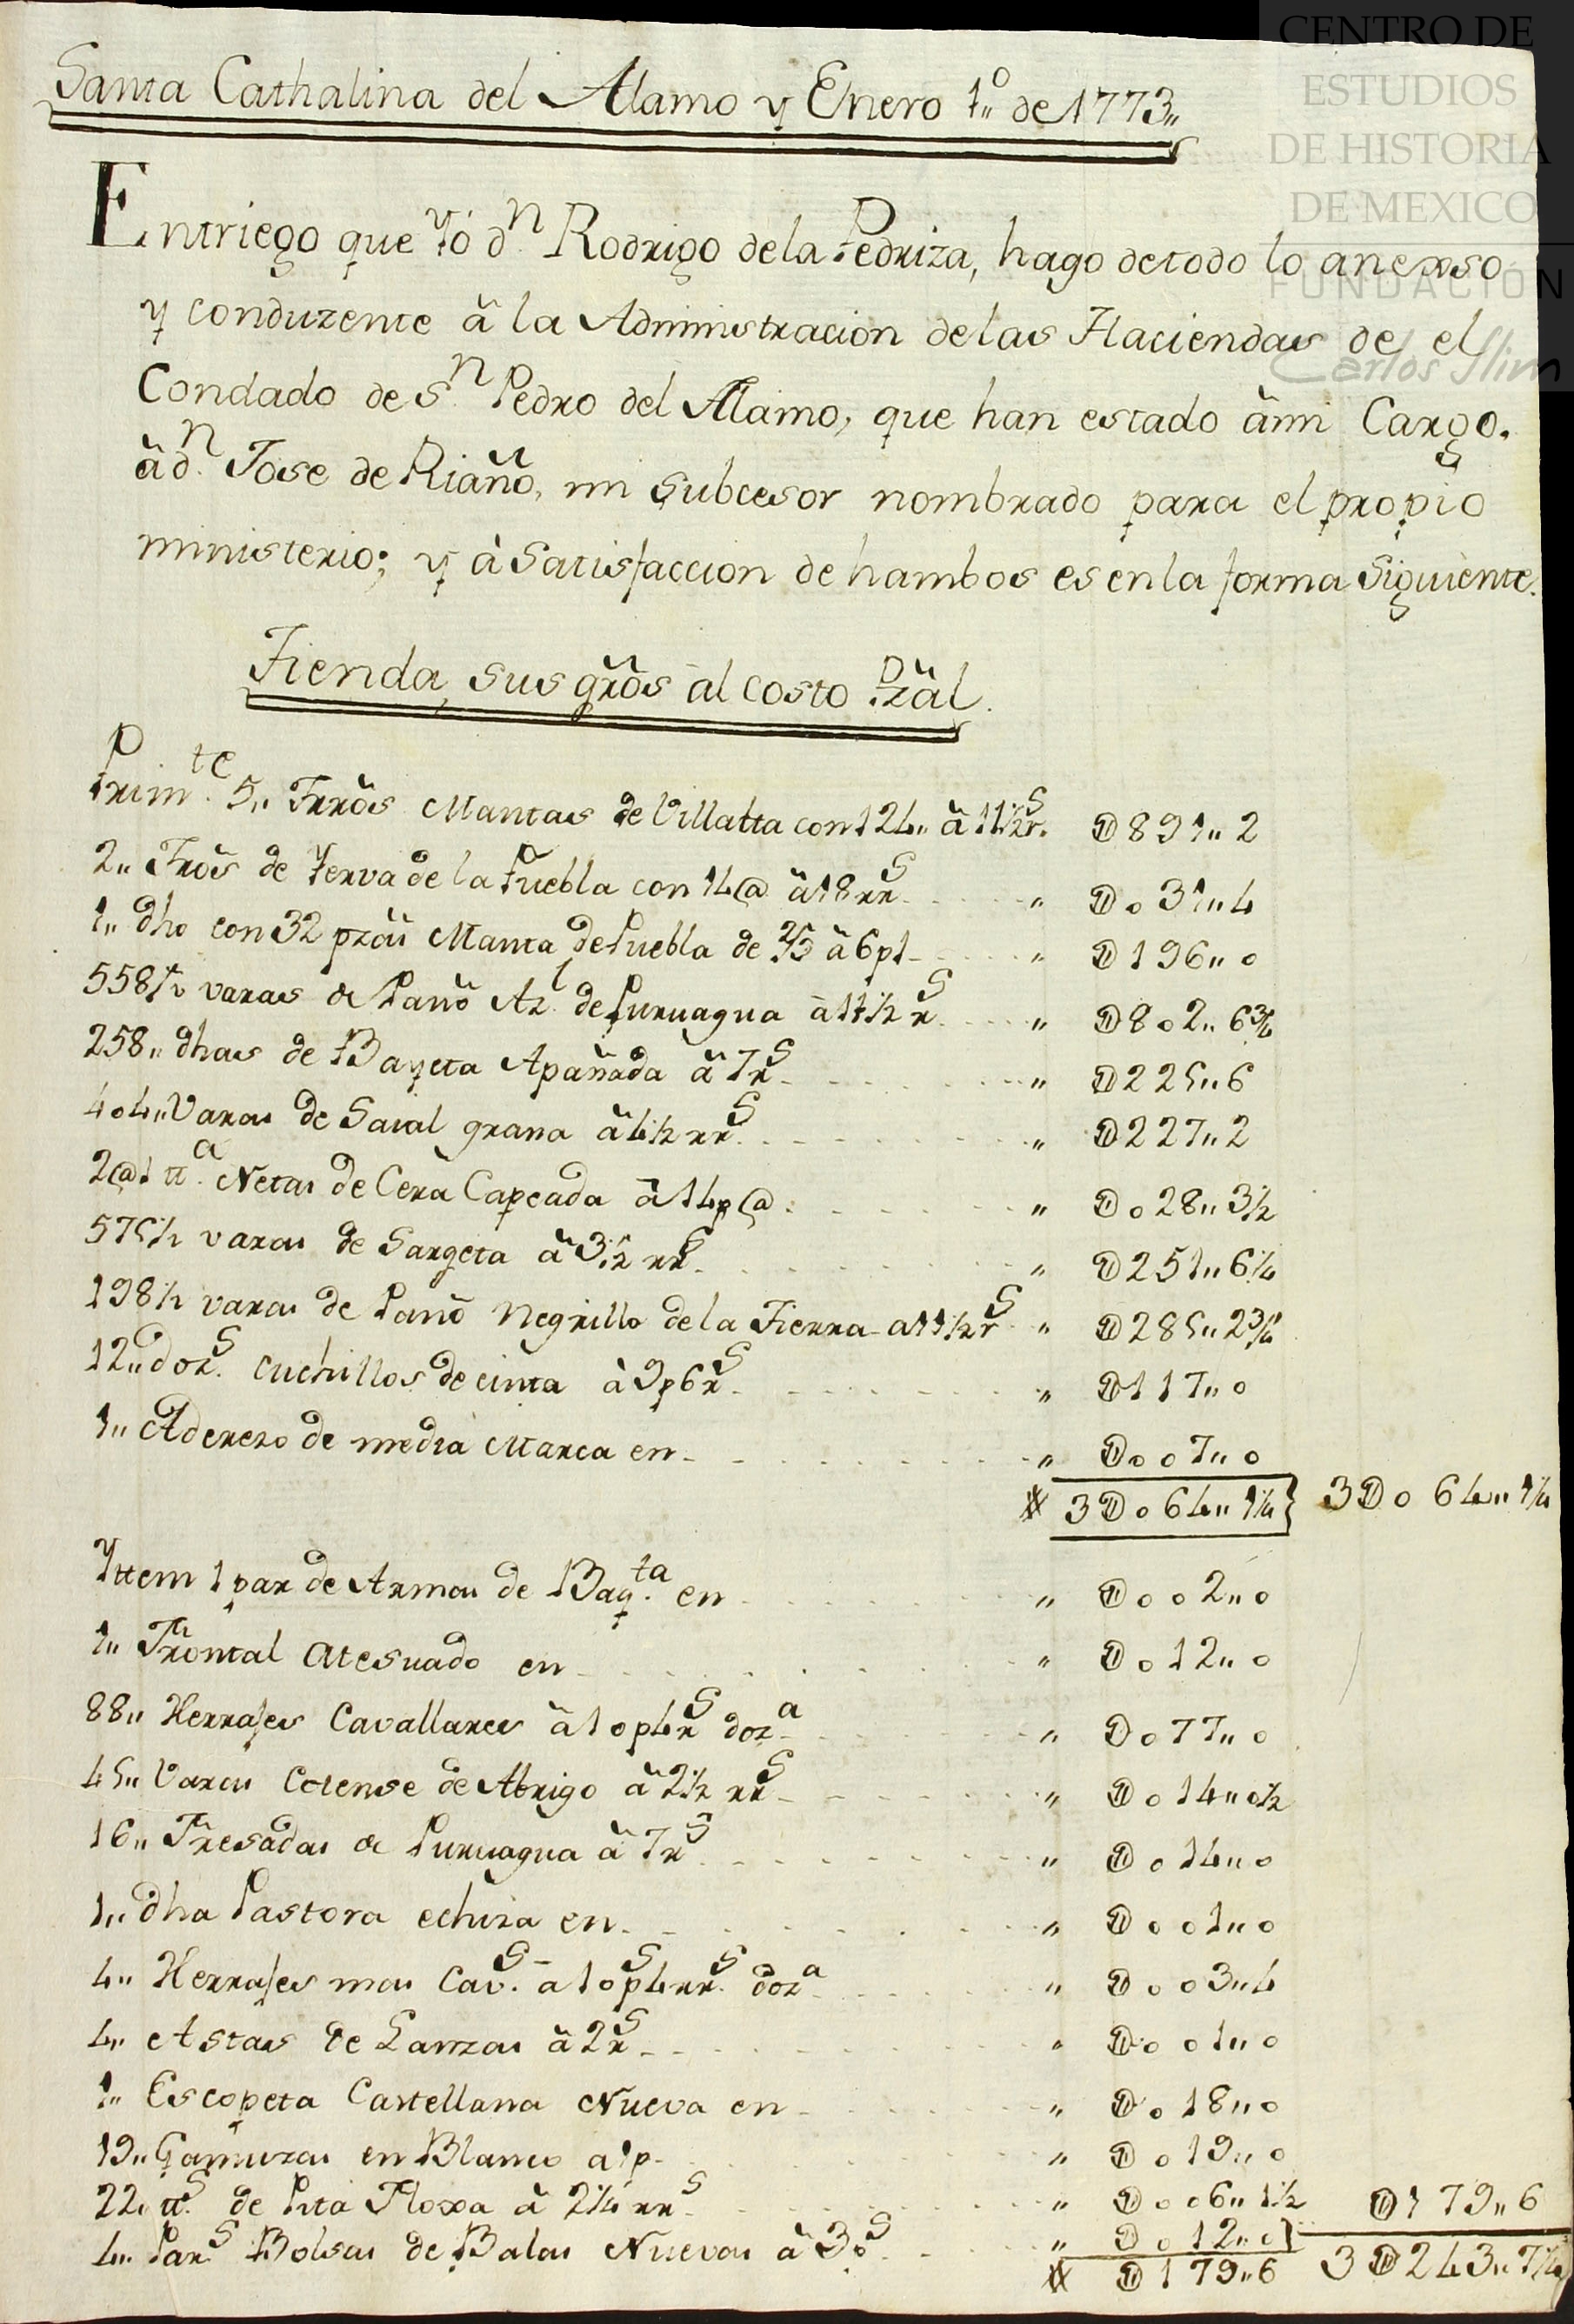 CENTRO DE
ESTUDIOS
DE HISTORIA
DE MEXICO
FUNDACIÓN
Carlos Slim
Santa Cathalina del Alamo y Enero 1,,º de 1773,,
Entriego que Yó dn. Rodrigo dela Pedriza, hago detodo lo anexso
y conduzente â la Administracion delas Haciendas de el
Condado de Sn. Pedro del Alamo, que han estado âmi Cargo.
â dn. Jose de Riaño, mi subcesor nombrado para el propio
ministerio; y à Satisfaccion de hambos es enla forma Siguiente.
Tienda, sus grõs al costo Pzãl.
Primte. 5,, Trrõs Mantas de Villalta con 124,, â 11½rs. D891,,2
2,, Trõs de Yerva de la Puebla con 14@ â 18 rrs. ,, Do31,,4
1,, dho con 32 pzãs Manta de Puebla de 2/3 â 6pl ,, D196,,0
558½ varas de Paño Azl. de Puruagua â 11½ rs. ,, D802,,6¾
258,, dhas de Bayeta Apañada â 7rs. ,, D225,,6
404,, Varas de Saial grana â 4½ rrs. ,, D227,,2
2@1 tta. Netas de Cera Capeada â 14p @. ,, Do28,,3½
575½ varas de Sargeta â 3½ rrs. ,, D251,,6¼
198½ varas de Paño Negrillo dela Tierra a 11½rs. ,, D285,,2¾
12,, dozs. Cuchillos de cinta â 9p6rs. ,, D117,,0
1,, Aderezo de media Marca en ,, Doo7,,0
3Do64,,1¼ 3Do64,,1¼
Yttem 1 par de Armas de Baqta. en ,, Doo2,,0
1,, Frontal Atesuado en ,, Do12,,0
88,, Herrajes Cavallares â 10p4rs doza. ,, Do77,,0
45,, Varas Cotense de Abrigo â 2½ rrs. ,, Do14,,0½
16,, Fresadas de Puruagua â 7rs. ,, Do14,,0
1,, dha Pastora echiza en ,, Doo1,,0
4,, Herrajes mas Cavs. â 10ps4rrs. doza. ,, Doo3,,4
4,, Astas de Lanzas â 2rs. ,, Doo1,,0
1,, Escopeta Castellana Nueva en ,, Do18,,0
19,, Gamuzas en Blanco a 1p. ,, Do19,,0
22,, tts. de Pita Floxa â 2¼ rrs. ,, Doo6,,1½ D179,,6
4,, Pars. Bolsas de Balas Nuevas â 3ps. ,, Do12,,0
D179,,6 3D243,,7¼